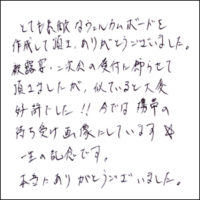 とても素敵なウェルカムボードを
作成して頂き、ありがとうございました。
披露宴・二次会の受付に飾らせて
頂きましたが、似ていると大変
好評でした!! 今では携帯の
待ち受け画像にしています☆
一生の記念です。
本当にありがとうございました。